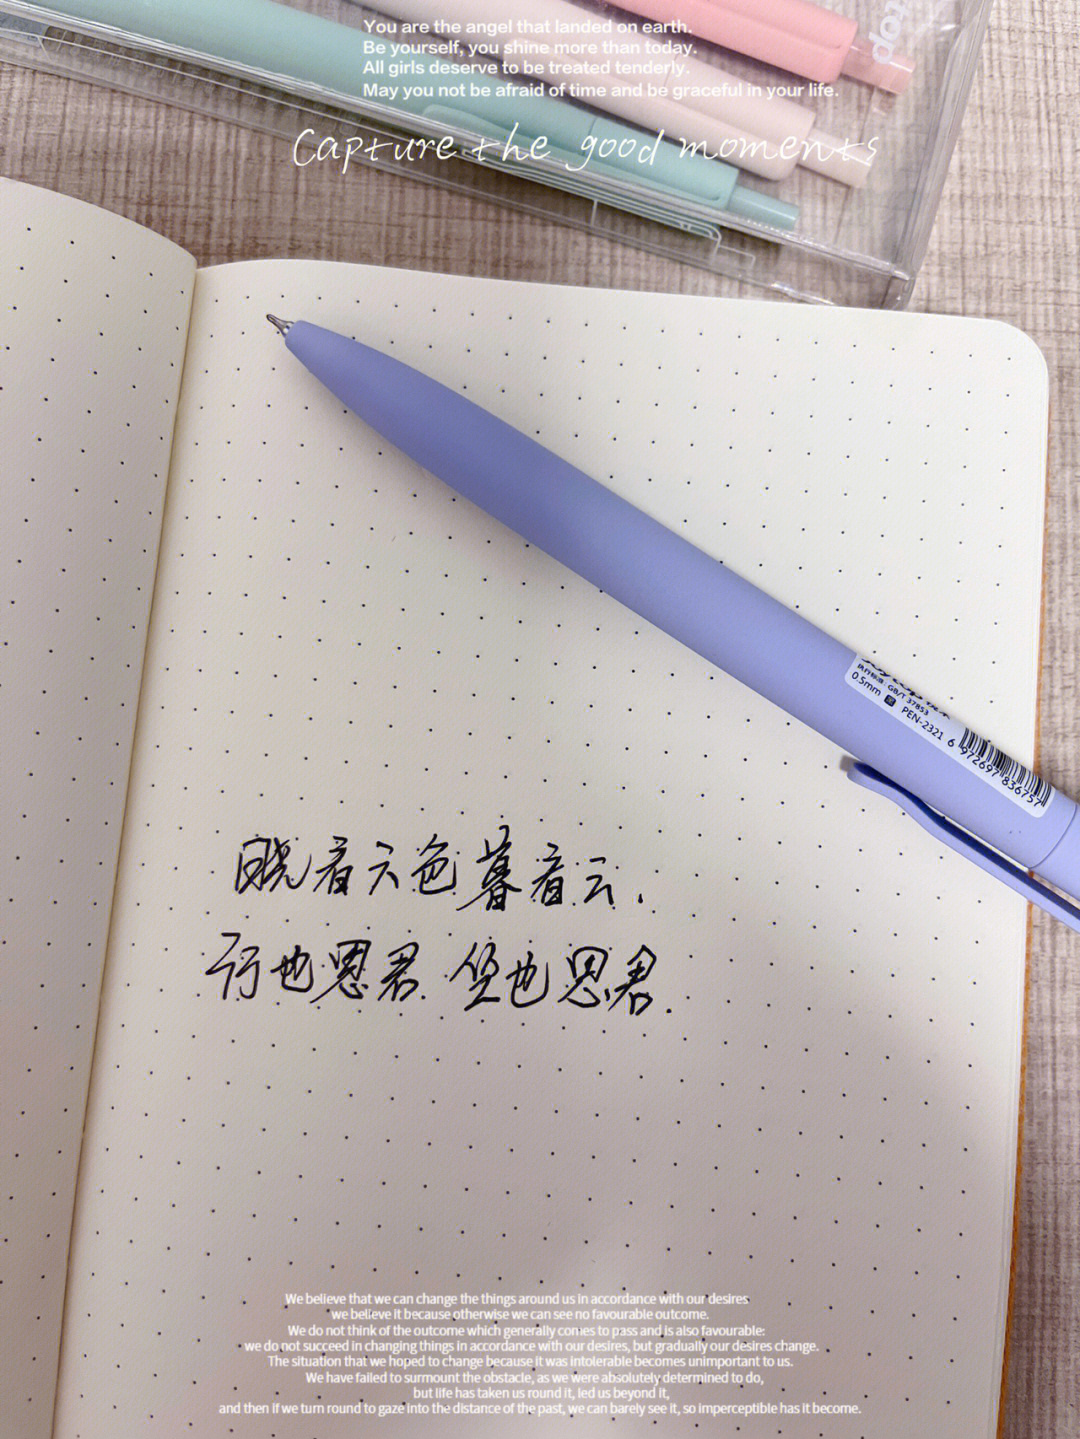 You are the angel that landed on earth.
Be yourself, you shine more than today.
All girls deserve to be treated tenderly.
May you not be afraid of time and be graceful in your life.
Capture the good moments
top
执行标准: GB/T 37853
0.5mm
PEN-2321
6 972697 836757
晓看天色暮看云.
行也思君.坐也思君.
We believe that we can change the things around us in accordance with our desires
we believe it because otherwise we can see no favourable outcome.
We do not think of the outcome which generally comes to pass and is also favourable:
we do not succeed in changing things in accordance with our desires, but gradually our desires change.
The situation that we hoped to change because it was intolerable becomes unimportant to us.
We have failed to surmount the obstacle, as we were absolutely determined to do,
but life has taken us round it, led us beyond it,
and then if we turn round to gaze into the distance of the past, we can barely see it, so imperceptible has it become.